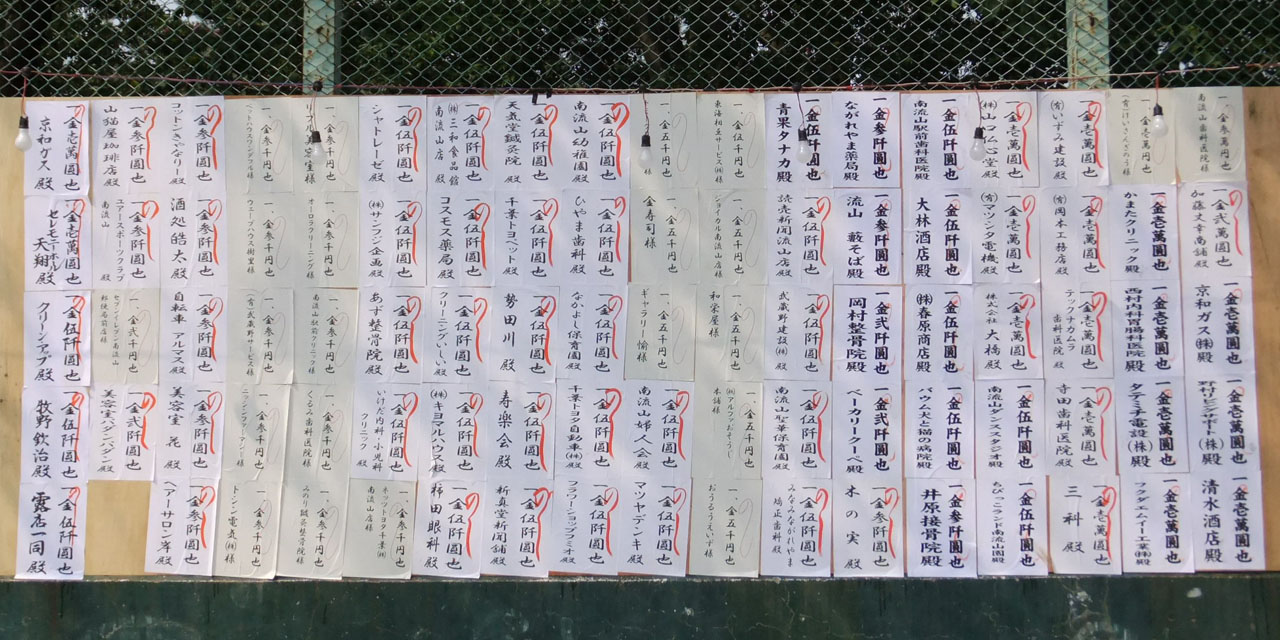 一、金参萬円也
南流山歯科医院様
一、金壱萬円也
一金壱萬圓也
(有)いずみ建設殿
一金壱萬圓也
一金伍阡圓也
南流山駅前歯科医院殿
一金参阡圓也
ながれやま薬局殿
一金伍阡圓也
青果タナカ殿
一、金五千円也
一、金五千円也
様
一金伍阡圓也
南流山幼稚園殿
一金伍阡圓也
天気堂鍼灸院殿
一金伍阡圓也
(株)三和食品館
南流山店 殿
一金伍阡圓也
シャトレーゼ殿
一、金参千円也
一、金参千円也
一金参阡圓也
コットンきゃなりー殿
一金参阡圓也
山猫屋珈琲店殿
一金壱萬圓也
京和ガス殿
一金弐萬圓也
加藤丈幸商舗殿
一金壱萬圓也
かまたクリニック殿
一金壱萬圓也
(有)岡本工務店殿
一金壱萬圓也
(有)マツシタ電機殿
一金伍阡圓也
大林酒店殿
一金参阡圓也
流山 藪そば殿
一金伍阡圓也
読売新聞流山店殿
一、金五千円也
ジョイカル南流山店様
一、金五千円也
金寿司様
一金伍阡圓也
ひやま歯科殿
一金伍阡圓也
千葉トヨペット殿
一金伍阡圓也
コスモス薬局殿
一金伍阡圓也
(株)サンフラン企画殿
一、金参千円也
オーロラクリーニング様
一、金参千円也
一金参阡圓也
酒処皓大殿
一金参阡圓也
ユアースポーツクラブ
南流山 殿
一金壱萬圓也
セレモニーホール
天翔殿
一金壱萬圓也
京和ガス(株)殿
一金壱萬圓也
西村内科胃腸科医院殿
一金壱萬圓也
テックナカムラ
歯科医院殿
一金壱萬圓也
株式会社大橋殿
一金伍阡圓也
(株)春原商店殿
一金弐阡圓也
岡村整骨院殿
一金伍阡圓也
武蔵野建設(株)殿
一、金五千円也
和栄屋様
一、金五千円也
ギャラリー愉様
一金伍阡圓也
なかよし保育園殿
一金伍阡圓也
勢田川殿
一金伍阡圓也
クリーニングいしい殿
一金伍阡圓也
あずま整骨院殿
一、金参千円也
南流山駅前クリニック様
一、金参千円也
(有)武蔵野サービス様
一金参阡圓也
自転車ダルマス殿
一、金弐千円也
セブンイレブン南流山
郵便局前店様
一金伍阡圓也
クリーンアップ殿
一金壱萬圓也
野村リビングサポート(株)殿
一金壱萬圓也
タテミチ電設(株)殿
一金壱萬圓也
寺田歯科医院殿
一金伍阡圓也
南流山ダンススタジオ殿
一金伍阡圓也
バウム犬と猫の病院殿
一金弐阡圓也
ベーカリークーベ殿
一金伍阡圓也
南流山聖華保育園殿
一、金五千円也
一金伍阡圓也
南流山婦人会殿
一金伍阡圓也
千葉トヨタ自動車(株)殿
一金伍阡圓也
寿楽会殿
一金伍阡圓也
(株)キヨマルハウス殿
一金伍阡圓也
いけだ内科・小児科
クリニック 殿
一、金参千円也
くるみ歯科医院様
一、金参千円也
一金参阡圓也
美容室花殿
一金弐阡圓也
美容室バンダンバンダン殿
一金伍阡圓也
牧野欽治殿
一金壱萬圓也
清水酒店殿
一金壱萬圓也
フクダエムイー工業(株)殿
一金壱萬圓也
三科殿
一金伍阡圓也
ちびっこランド南流山園殿
一金参阡圓也
井原接骨院殿
一金参阡圓也
木の実殿
一金伍阡圓也
みなみながれやま
矯正歯科殿
一、金五千円也
おうるうえいず様
一金伍阡圓也
マツヤデンキ殿
一金伍阡圓也
フラワーショップフミオ殿
一金伍阡圓也
新星堂新聞舗殿
一金伍阡圓也
柿田眼科殿
一、金参千円也
ネッツトヨタ千葉(株)
南流山店様
一、金参千円也
みのり鍼灸整骨院様
一、金参千円也
トシン電気(株)様
一金参阡圓也
ヘアーサロン岑殿
一金伍阡圓也
露店一同殿